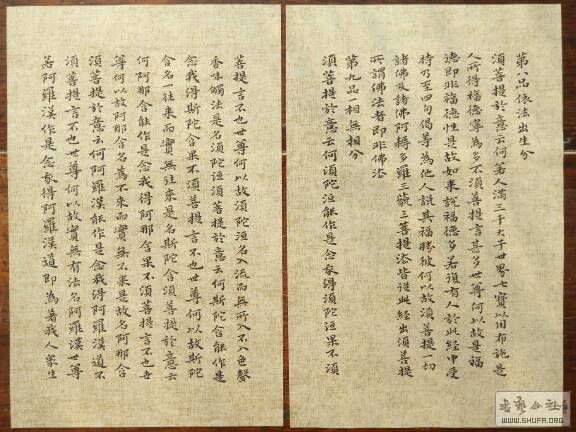 第八品依法出生分
須菩提於意云何若人滿三千大千世界七寶以用布施是
人所得福德寧為多不須菩提言甚多世尊何以故是福
德即非福德性是故如來說福德多若復有人於此經中受
持乃至四句偈等為他人說其福勝彼何以故須菩提一切
諸佛及諸佛阿耨多羅三藐三菩提法皆從此經出須菩提
所謂佛法者即非佛法
第九品一相無相分
須菩提於意云何須陀洹能作是念我得須陀洹果不須
菩提言不也世尊何以故須陀洹名入流而無所入不入色聲
香味觸法是名須陀洹須菩提於意云何斯陀含能作是
念我得斯陀含果不須菩提言不也世尊何以故斯陀
含名一往來而實無往來是名斯陀含須菩提於意云
何阿那含能作是念我得阿那含果不須菩提言不也世
尊何以故阿那含名為不來而實無不來是故名阿那含
須菩提於意云何阿羅漢能作是念我得阿羅漢道不
須菩提言不也世尊何以故實無有法名阿羅漢世尊
若阿羅漢作是念我得阿羅漢道即為著我人眾生
书艺公社
WWW.SHUFA.ORG